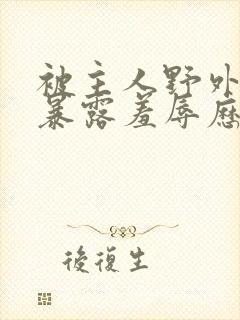 被主人野外
暴露羞辱历
後復生